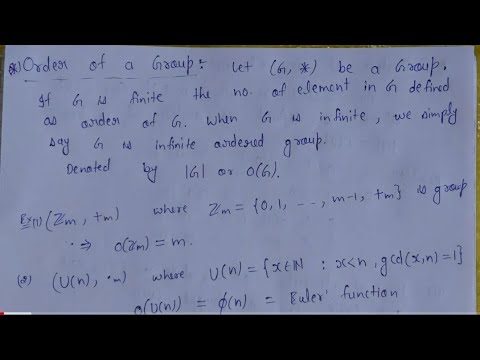 *) Order of a Group:- Let (G, *) be a Group.
If G is finite the no. of element in G defined
as order of G. When G is infinite, we simply
say G is infinite ordered group.
Denoted by |G| or o(G).
Ex(1) (ℤm, +m) where ℤm = {0, 1, ---, m-1, +m} is group
⇒ o(ℤm) = m.
(2) (U(n), ·m) where U(n) = {x∈ℕ : x<n, gcd(x,n)=1}
o(U(n)) = ϕ(n) = Euler' function